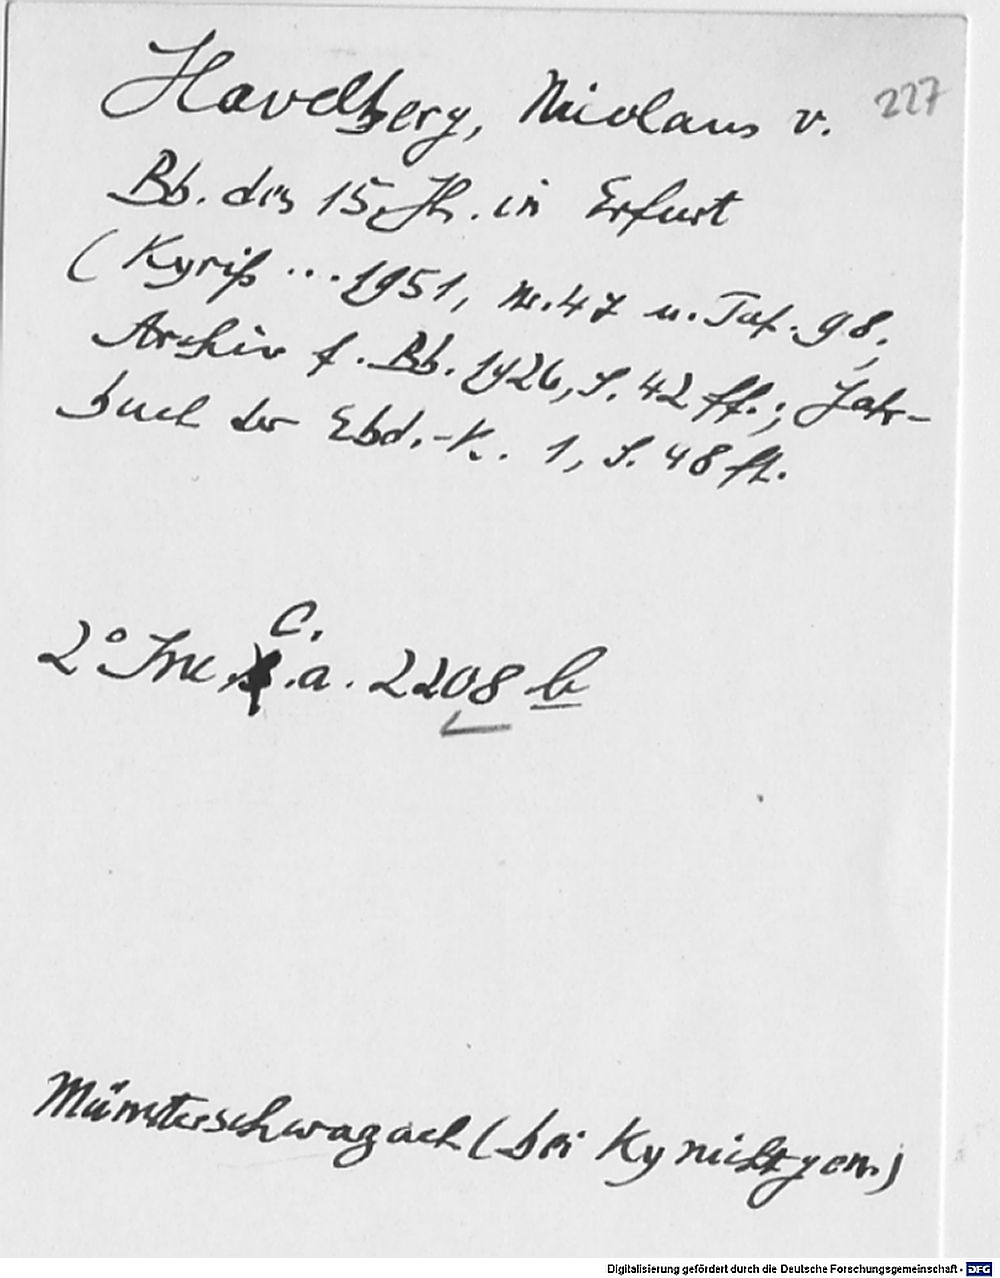 Havelberg, Nicolaus v. 227
Bb. des 15. Jh. in Erfurt
(Kyriß ... 1951, nr. 47 u. Taf. 98;
Archiv f. Bb. 1926, S. 42 ff.; Jahr-
buch der Ebd.-K. 1, S. 48 ff.
C.
2° Inc. .a. 2208 b
Münsterschwazach (bei
Digitalisierung gefördert durch die Deutsche Forschungsgemeinschaft - DFG